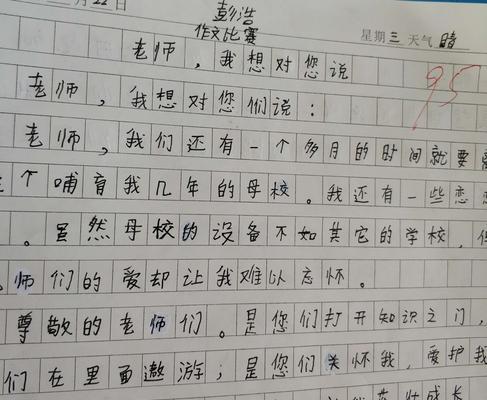 月22日
彭浩
作文比赛
星期三 天气 暗
老师,我想对您说
95
老师,我想对您们说:
老师,我们还有一个多月的时间就要
个哺育我几年的母校。我还有一些恋
。虽然母校的设备不如其它的学校,
师们的爱却让我难以忘怀。
尊敬的老师们。是您们打开知识之门,
们在里面遨游;是您们关怀我,爱护我
成长